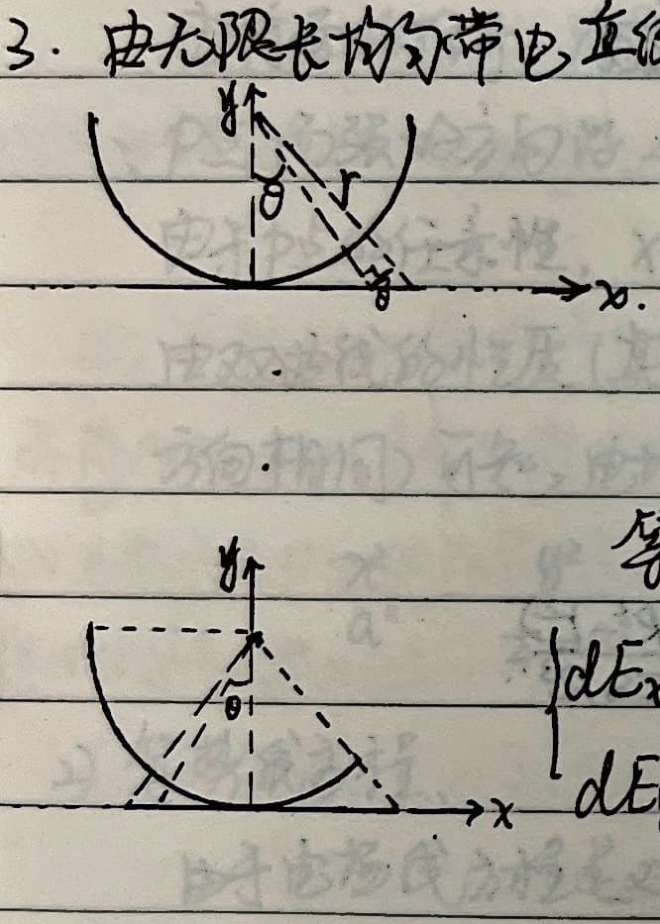 3. 由无限长均匀带电直
y
θ
r
θ
x.
y
θ
dEx
x
dE